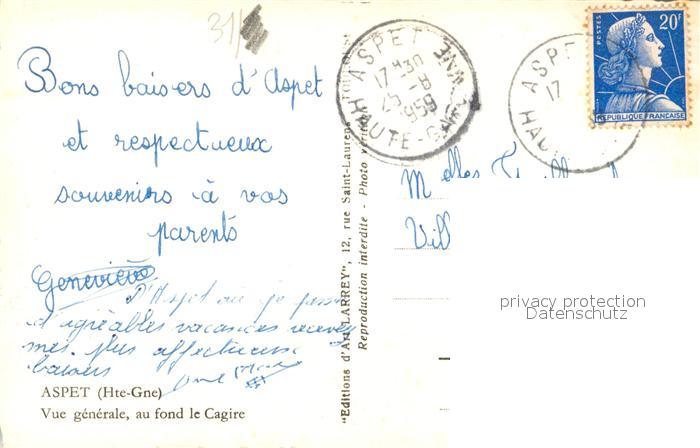 31/
Bons baisers d'Aspet
et respectueux
souvenirs à vos
parents
Geneviève
D'Aspet où je passe
d'agréables vacances recevez
mes plus affectueux
baisers
ASPET (Hte-Gne)
Vue générale, au fond le Cagire
"Editions d'Art LARREY", 12, rue Saint-Laurent
Reproduction interdite - Photo
ASPET
17 H30
25 - 8
1959
HAUTE-GNE
ASPET
17
HAU
POSTES
20F
REPUBLIQUE FRANÇAISE
Melles
Vill
privacy protection
Datenschutz